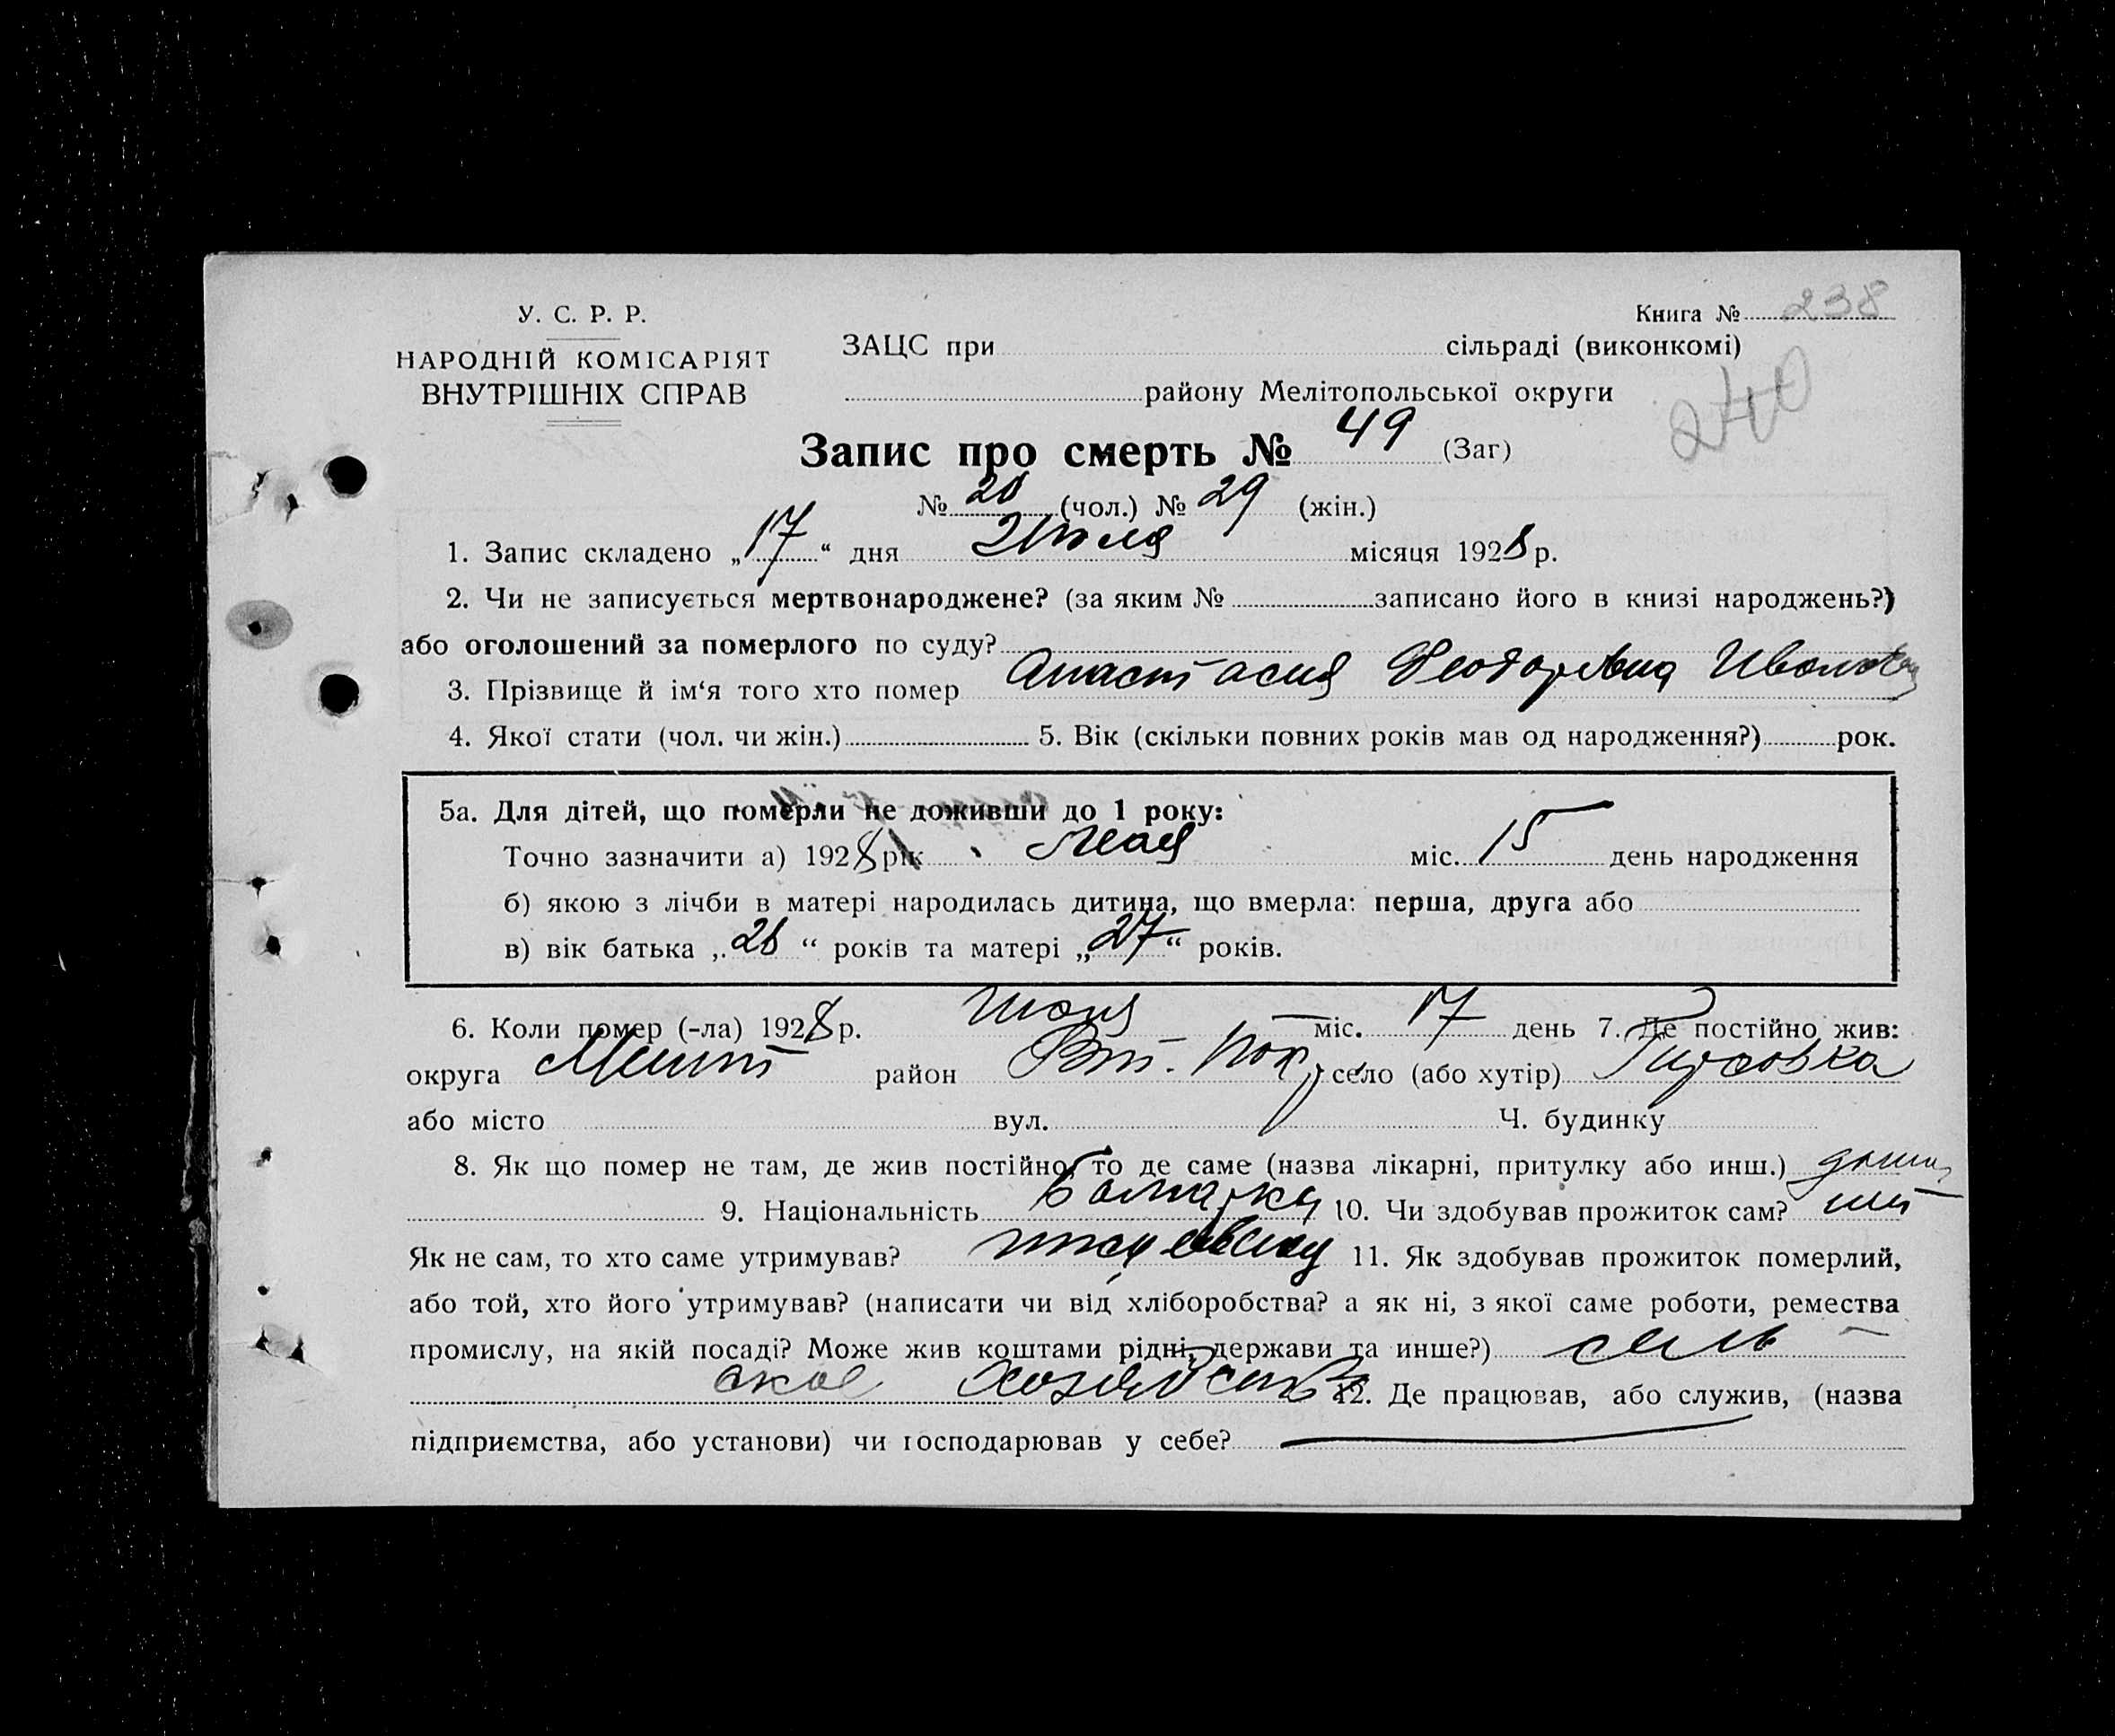 У. С. Р. Р.
НАРОДНІЙ КОМІСАРІЯТ
ВНУТРІШНІХ СПРАВ
Книга № 238
ЗАЦС при сільраді (виконкомі)
240
району Мелітопольської округи
Запис про смерть № 49 (Заг)
№ 20 (чол.) № 29 (жін.)
1. Запис складено „17“ дня Июля місяця 1928 р.
2. Чи не записується мертвонароджене? (за яким № записано його в книзі народжень?)
або оголошений за померлого по суду?
3. Прізвище й ім‘я того хто помер Анастасия Феодоровна
4. Якої стати (чол. чи жін.) 5. Вік (скільки повних років мав од народження?) рок.
5а. Для дітей, що померли не доживши до 1 року:
Точно зазначити а) 1928 рік Мая міс. 15 день народження
б) якою з лічби в матері народилась дитина, що вмерла: перша, друга або
в) вік батька „26“ років та матері „27“ років.
6. Коли помер (-ла) 1928 р. міс. 17 день 7. Де постійно жив:
округа Мелит район Вт. Пок. село (або хутір) Гирсовка
або місто вул. Ч. будинку
8. Як що помер не там, де жив постійно, то де саме (назва лікарні, притулку або инш.) дома
9. Національність Болгарка 10. Чи здобував прожиток сам?
Як не сам, то хто саме утримував? 11. Як здобував прожиток померлий,
або той, хто його утримував? (написати чи від хліборобства? а як ні, з якої саме роботи, ремества
промислу, на якій посаді? Може жив коштами рідні, держави та инше?) сель
ское хозяйство 12. Де працював, або служив, (назва
підприємства, або установи) чи господарював у себе?